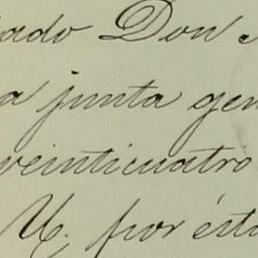 ado Don
a junta gen
veinticuatro
U. por ésta